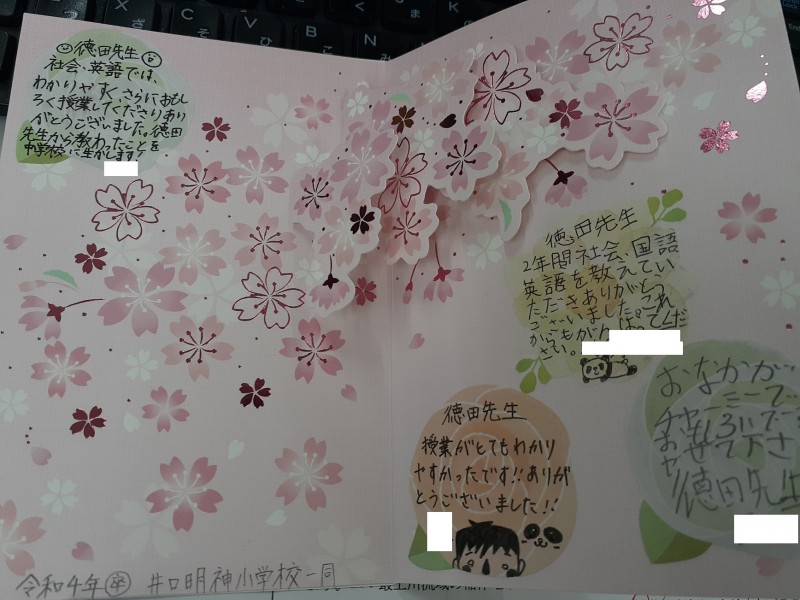 徳田先生
社会、英語では、
わかりやすく、さらにおもし
ろく授業してくださりあり
がとうございました。徳田
先生から教わったことを
中学校に生かします!
徳田先生
2年間社会、国語
英語を教えてい
ただきありがとう
ございました。これ
からもがんばってくだ
さい。
徳田先生
授業がとてもわかり
やすかったです!!ありが
とうございました!!
おなかが
チャーミーで
おもしろいで
やせて下さ
徳田先生
令和4年卒 井口明神小学校一同
C
V
B
N
M
K
ひ
こ
み
も
ま